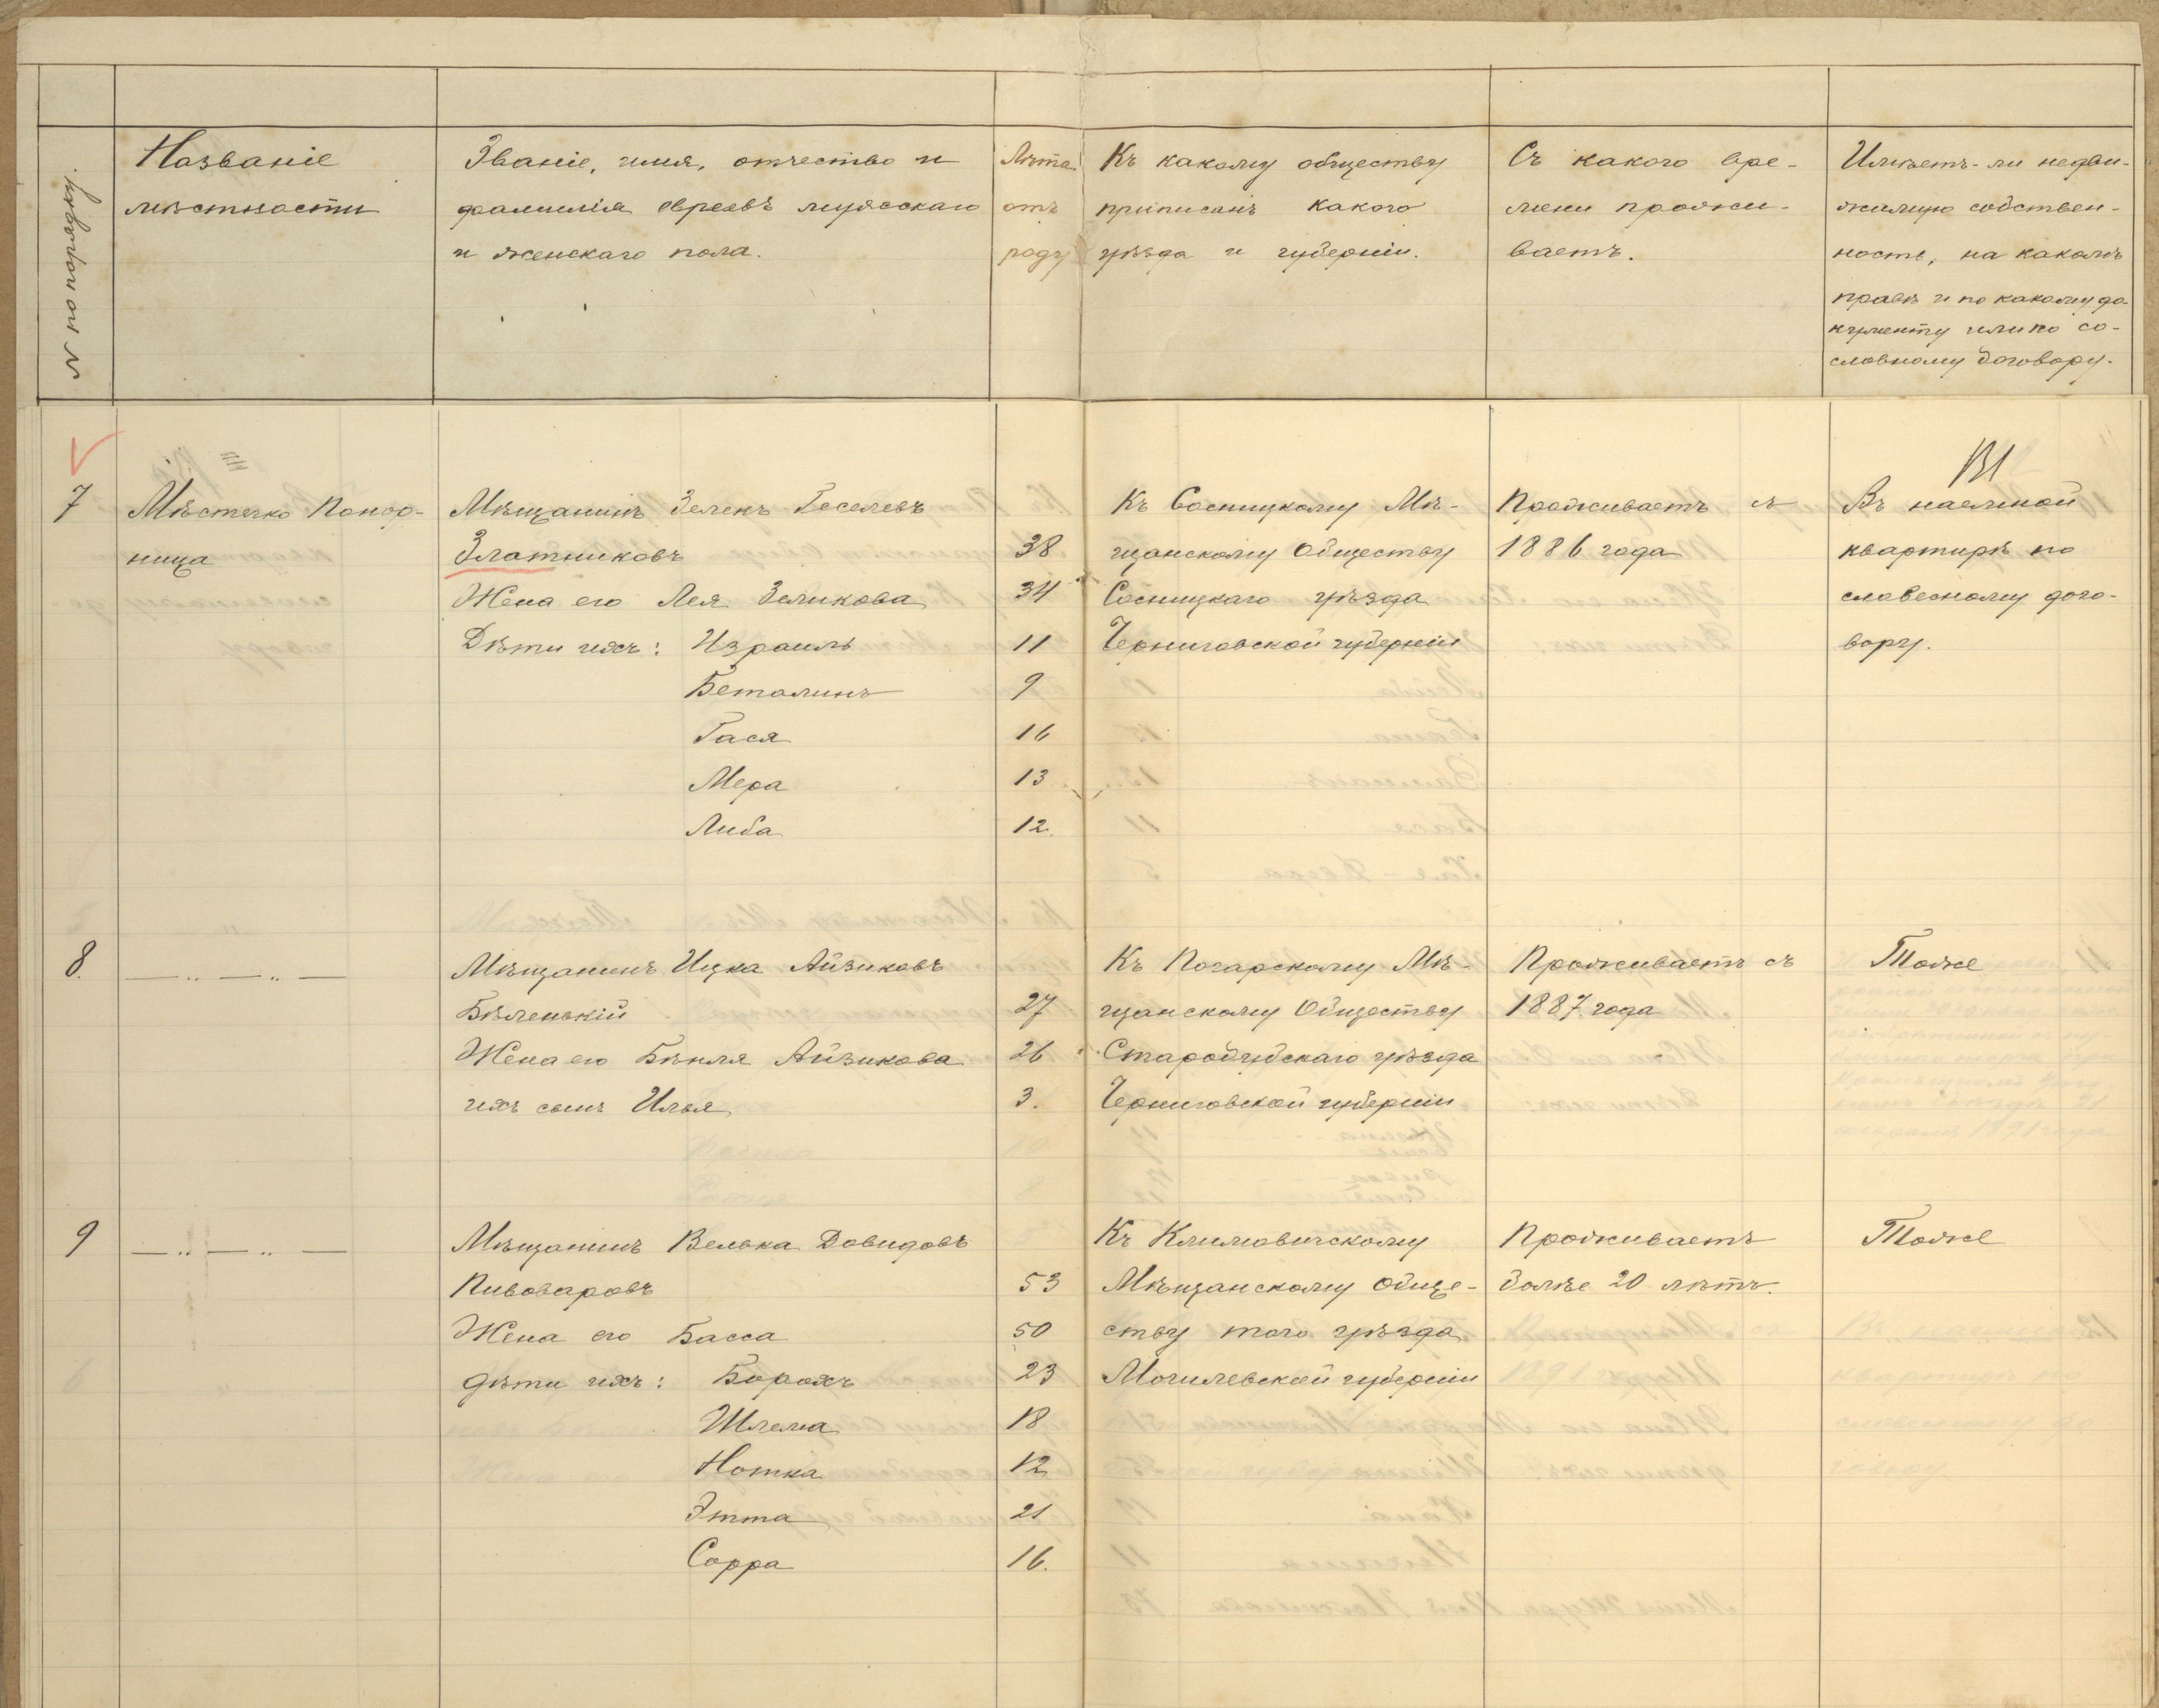 № по порядку.
Названіе
мѣстности
Званіе, имя, отчество и
фамилія евреевъ мужскаго
и женскаго пола.
Лѣта
отъ
роду
Къ какому обществу
приписанъ какого
уѣзда и губерніи.
Съ какого вре-
мени прожи-
ваетъ.
Имѣетъ-ли недви-
жимую собствен-
ность, на какомъ
правѣ и по какому до-
кументу или по со-
словному договору.
7
Мѣстечко Понор-
ница
Мѣщанинъ Зеленъ Геселевъ
Златниковъ
38
Жена его Лея Зеликова
34
Дѣти ихъ: Израиль
11
Беталинъ
9
Гася
16
Мера
13
Либа
12.
Къ Сосницкому Мѣ-
щанскому Обществу
Сосницкаго уѣзда
Черниговской губерніи
Проживаетъ съ
1886 года
Въ наемной
квартирѣ по
словесному дого-
вору.
8.
— „ — „ —
Мѣщанинъ Ицка Айзиковъ
Бѣленькій
27
Жена его Бѣйля Айзикова
26
ихъ сынъ Илья
3.
Къ Погарскому Мѣ-
щанскому Обществу
Стародубскаго уѣзда
Черниговской губерніи
Проживаетъ съ
1887 года
Тоже
9
— „ — „ —
Мѣщанинъ Велька Довидовъ
Пивоваровъ
53
Жена его Басса
50
дѣти ихъ: Борохъ
23
Шлема
18
Нотка
12
Этта
21
Сорра
16.
Къ Климовичскому
Мѣщанскому Обще-
ству того уѣзда
Могилевской губерніи
Проживаетъ
болѣе 20 лѣтъ.
Тоже